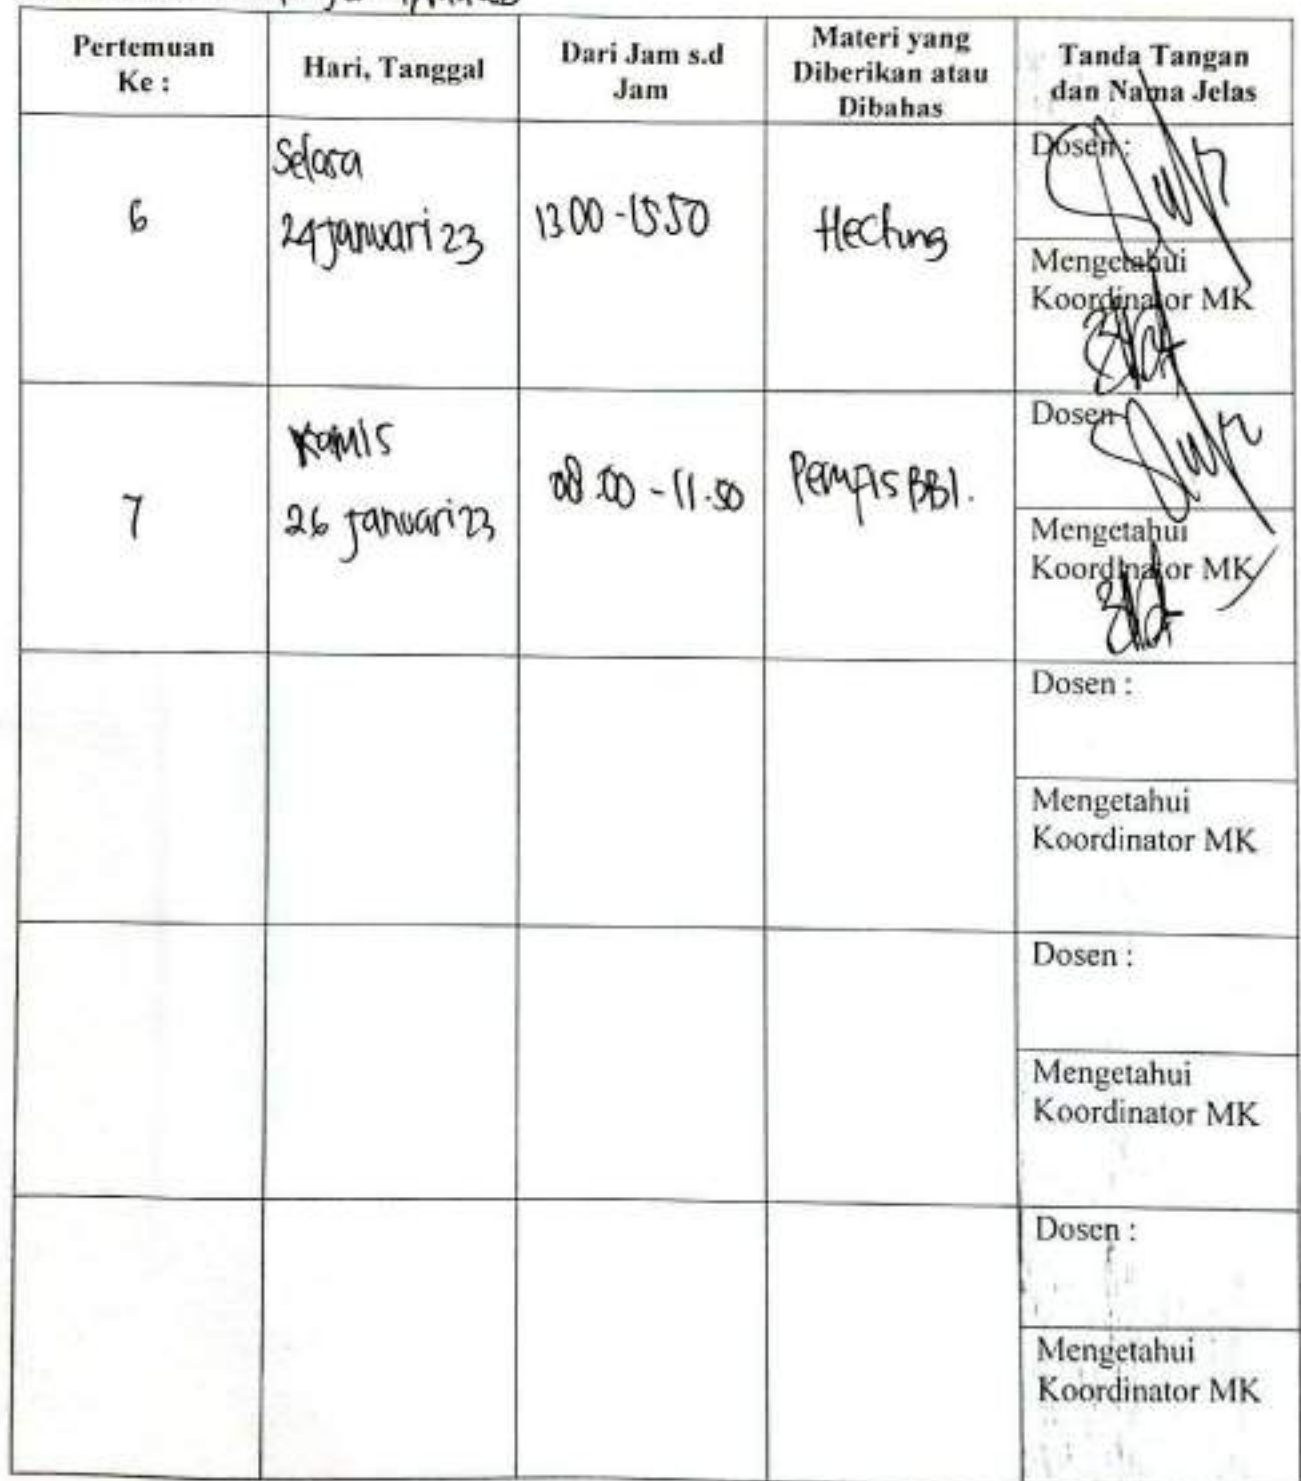 Pertemuan
Ke :
Hari, Tanggal
Dari Jam s.d
Jam
Materi yang
Diberikan atau
Dibahas
Tanda Tangan
dan Nama Jelas
6
Selasa
24 Januari 23
13.00 - 15.50
Hecting
Dosen :
Mengetahui
Koordinator MK
7
Kamis
26 Januari 23
08.00 - 11.50
Pemfis BBl.
Dosen
Mengetahui
Koordinator MK
Dosen :
Mengetahui
Koordinator MK
Dosen :
Mengetahui
Koordinator MK
Dosen :
Mengetahui
Koordinator MK